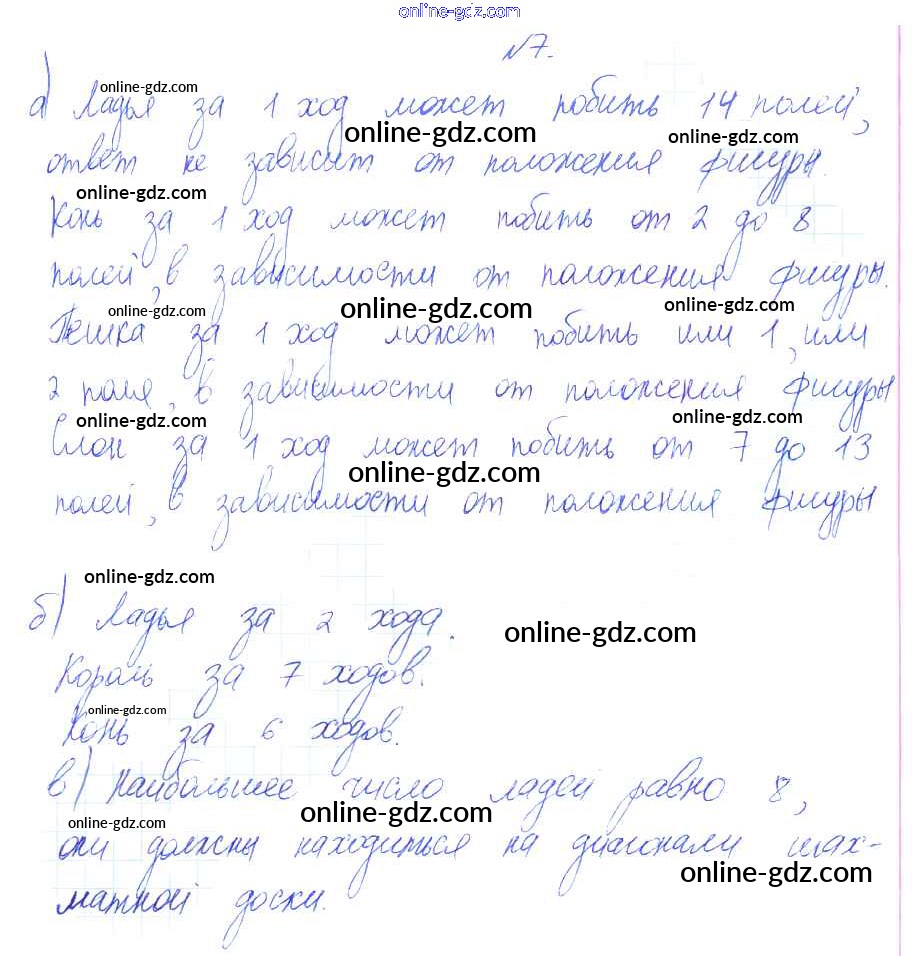 online-gdz.com
№7.
online-gdz.com
а) Ладья за 1 ход может побить 14 полей,
online-gdz.com online-gdz.com
ответ не зависит от положения фигуры.
online-gdz.com
Конь за 1 ход может побить от 2 до 8
полей, в зависимости от положения фигуры.
online-gdz.com online-gdz.com online-gdz.com
Пешка за 1 ход может побить или 1, или
2 поля, в зависимости от положения фигуры
online-gdz.com online-gdz.com
Слон за 1 ход может побить от 7 до 13
online-gdz.com
полей, в зависимости от положения фигуры
online-gdz.com
б) Ладья за 2 хода.
online-gdz.com
Король за 7 ходов.
online-gdz.com
Конь за 6 ходов.
в) Наибольшее число ладей равно 8,
online-gdz.com online-gdz.com
они должны находиться на диагонали шах-
online-gdz.com
матной доски.